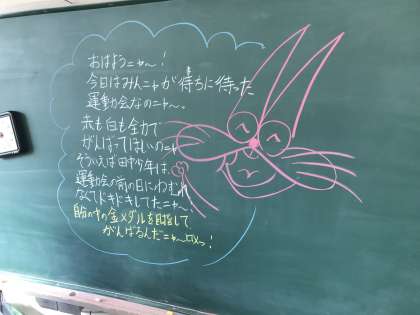 おはようニャ〜!
今日はみんニャが待ちに待った
運動会なのニャ〜。
赤も白も全力で
がんばってほしいのニャ
そういえば田中少年は、
運動会の前の日にねむれ
なくてドキドキしてたニャ〜!
自分の中の金メダルを目指して
がんばるんだニャ〜ッ!